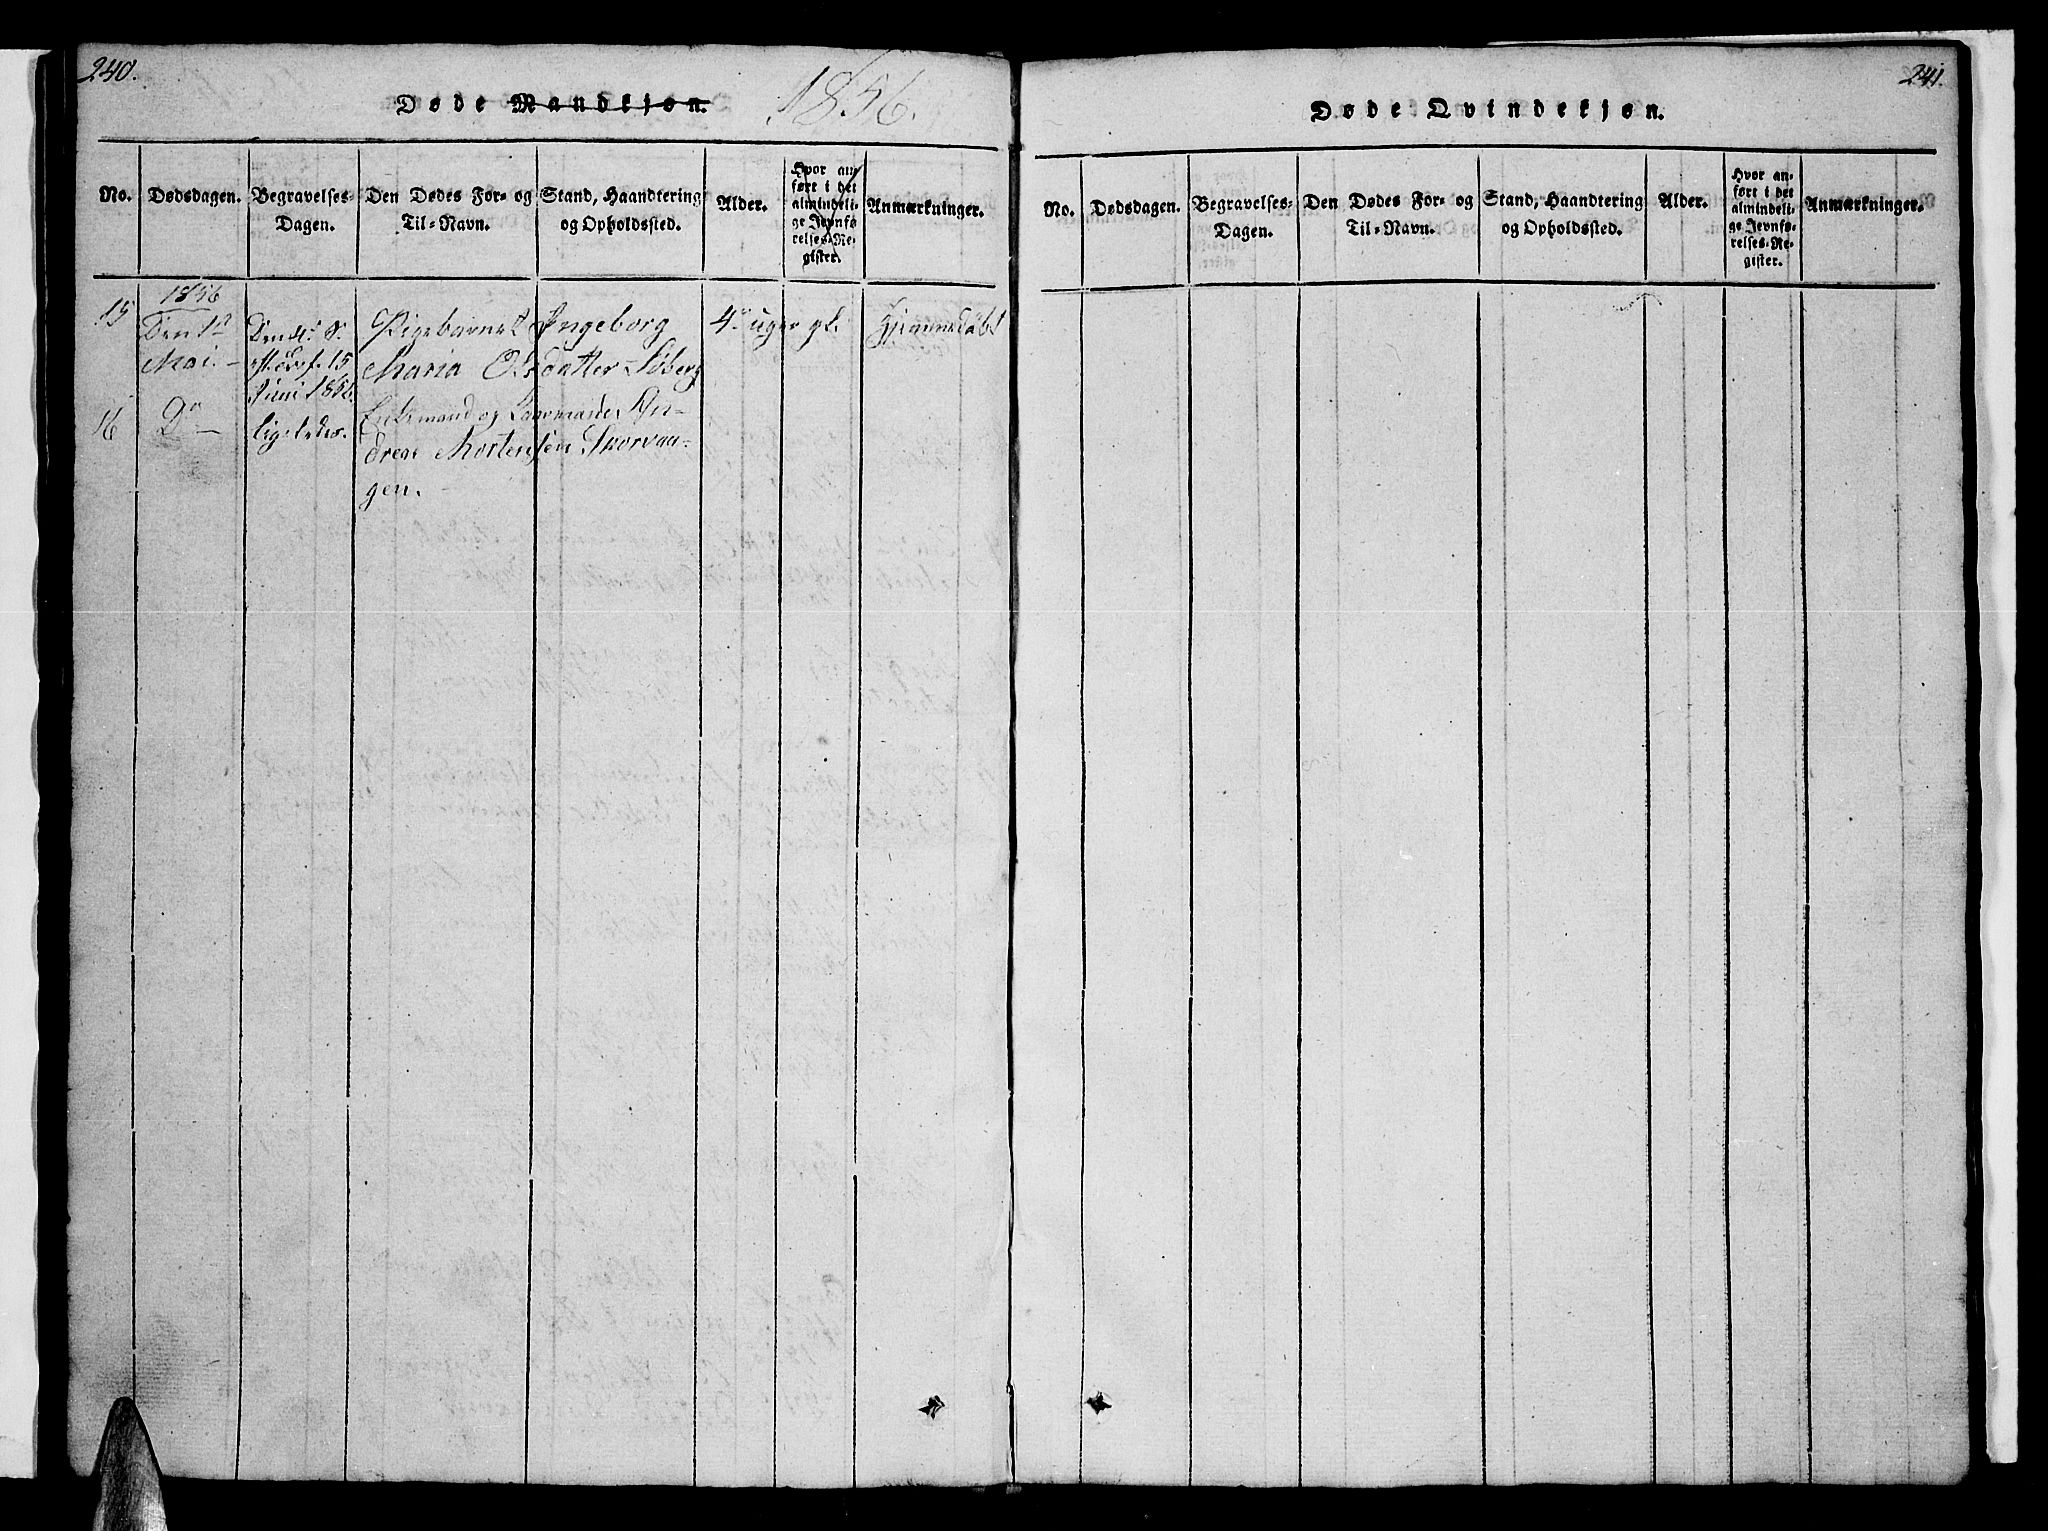 240.
Døde Mandkjøn.
1856.
No.
Dødsdagen.
Begravelses-
Dagen.
Den Dødes For- og
Til-Navn.
Stand, Haandtering
og Opholdssted.
Alder.
Hvor an-
ført i det
almindeli-
ge Jevnfø-
relses-Re-
gister.
Anmærkninger.
15
1856
Den 1ste
Mai.
15
Juni 1856.
Pigebarnet Ingeborg
Maria Olsdatter Søberg
4 uger gl.
Hjemmedøbt
16
Do
ligeledes.
Enkemand og An-
dreas Mortensen Skorvaa-
gen.
241.
Døde Qvindekjøn.
No.
Dødsdagen.
Begravelses-
Dagen.
Den Dødes For- og
Til-Navn.
Stand, Haandtering
og Opholdssted.
Alder.
Hvor an-
ført i det
almindeli-
ge Jevnfø-
relses-Re-
gister.
Anmærkninger.